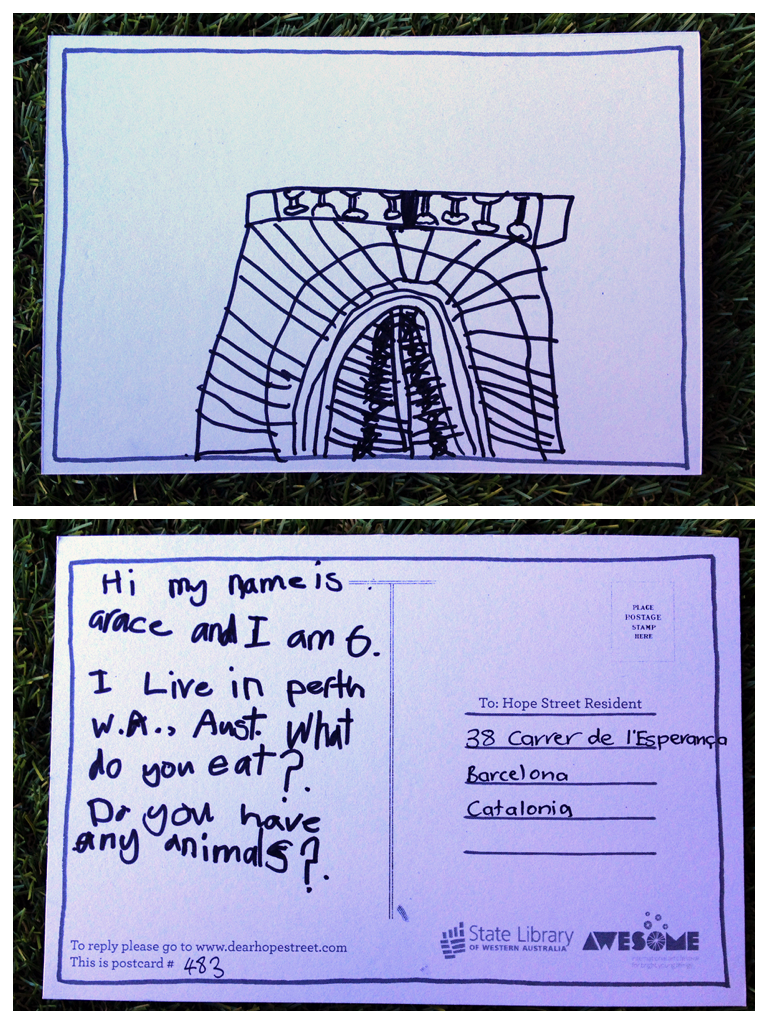 Hi my name is
Grace and I am 6.
I Live in perth
W.A., Aust. What
do you eat?
Do you have
any animals?
To reply please go to www.dearhopestreet.com
This is postcard # 483
PLACE
POSTAGE
STAMP
HERE
To: Hope Street Resident
38 Carrer de l'Esperança
Barcelona
Catalonia
State Library
OF WESTERN AUSTRALIA
AWESOME